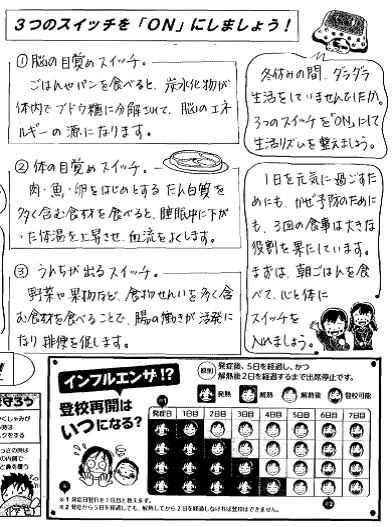 3つのスイッチを「ON」にしましょう!
①脳の目覚めスイッチ。
ごはんやパンを食べると、炭水化物が
体内でブドウ糖に分解されて、脳のエネ
ルギーの源になります。
②体の目覚めスイッチ。
肉・魚・卵をはじめとするたん白質を
多く含む食材を食べると、睡眠中に下が
った体温を上昇させ、血流をよくします。
③うんちが出るスイッチ。
野菜や果物など、食物せんいを多く含
む食材を食べることで、腸の働きが活発に
なり排便を促します。
冬休みの間、ダラダラ
生活をしていませんでしたか。
3つのスイッチを「ON」にして
生活リズムを整えましょう。
1日を元気に過ごすた
めにも、かぜ予防のために
も、3回の食事は大きな
役割を果たしています。
まずは、朝ごはんを食
べて、心と体に
スイッチを
入れましょう。
インフルエンザ!?
登校再開は
いつになる?
原則
発症後、5日を経過し、かつ
解熱後2日を経過するまで出席停止です。
発熱 解熱 解熱後 登校可能
※1
発症日 1日目 2日目 3日目 4日目 5日目 6日目 7日目
※2
※1 発症日翌日を1日目と数えます。
※2 発症から5日を経過しても、解熱してから2日を経過しなければ登校はできません。
守ろう
くしゃみが
時は
クをする
の内側で
と鼻を覆う